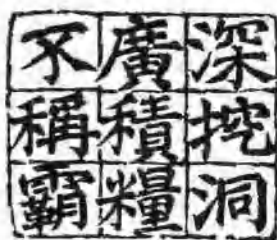 深挖洞
廣積糧
不稱霸